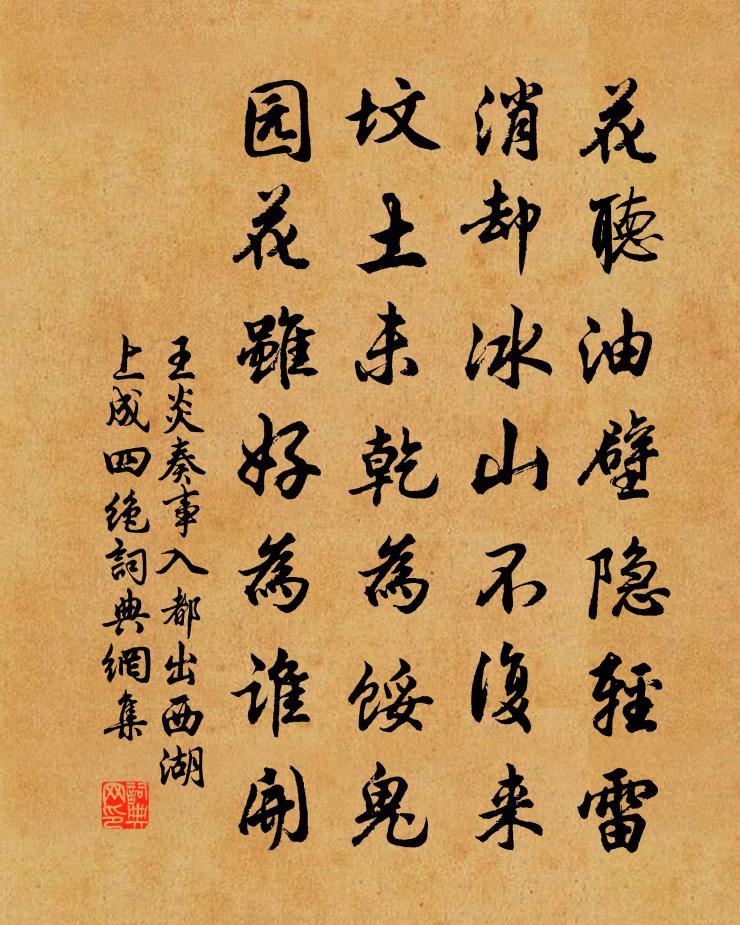 花聽油壁隐輕雷
消却冰山不復来
坟土未乾為餒鬼
园花雖好為谁開
王炎奏事入都出西湖
上成四絶詞典網集
詞典网印